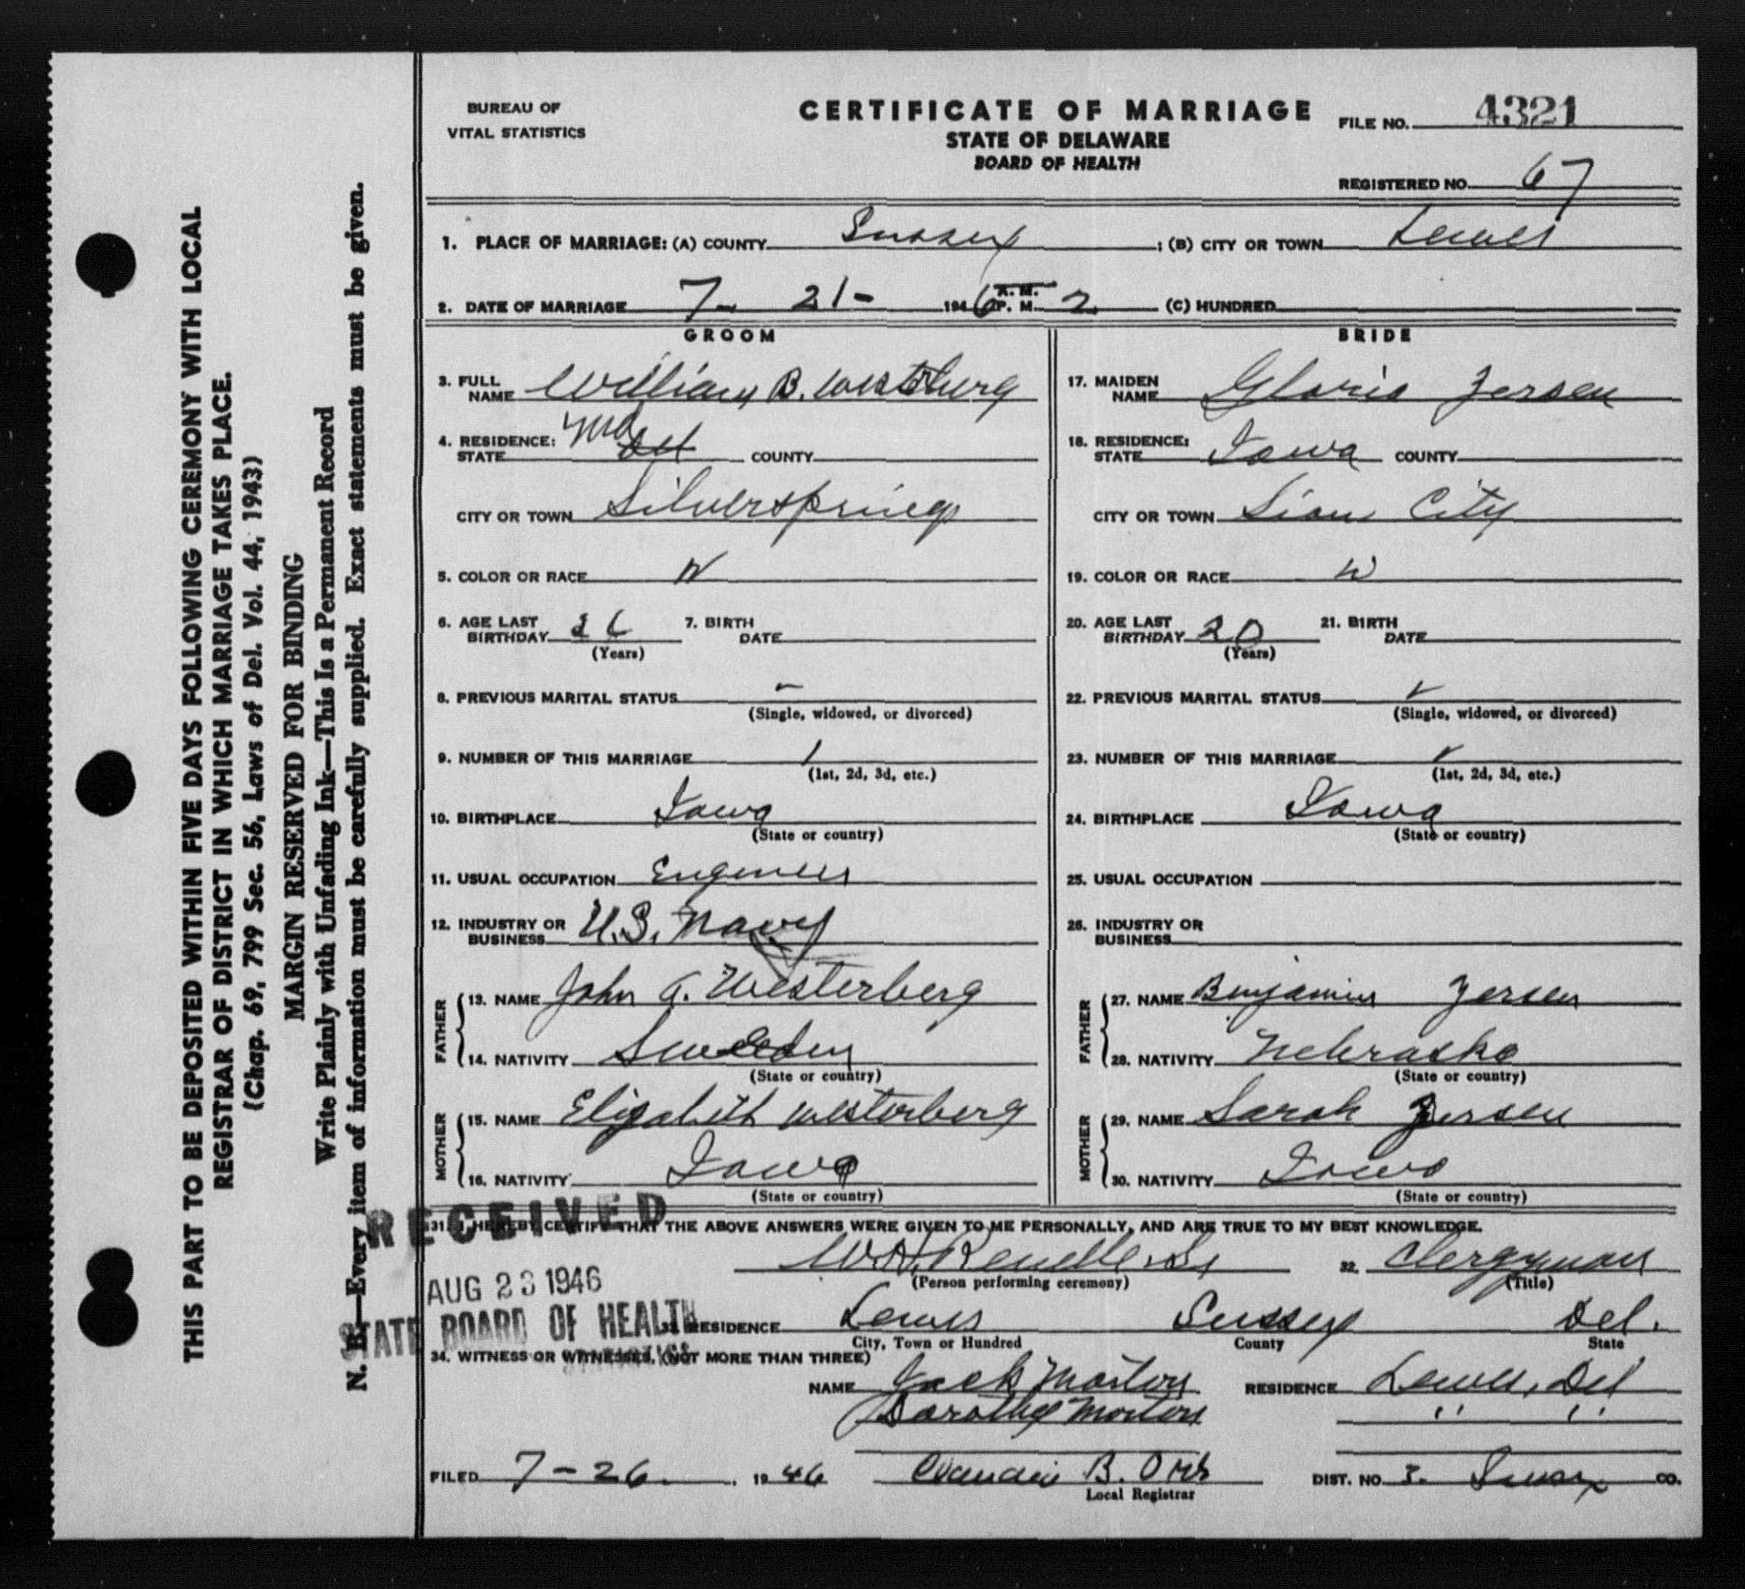 BUREAU OF
VITAL STATISTICS
CERTIFICATE OF MARRIAGE
STATE OF DELAWARE
BOARD OF HEALTH
FILE NO. 4321
REGISTERED NO. 67
1. PLACE OF MARRIAGE: (A) COUNTY Sussex ; (B) CITY OR TOWN Lewes
2. DATE OF MARRIAGE 7- 21- 1946 A. M. P. M. 2 (C) HUNDRED
GROOM
3. FULL NAME William B. Westerburg
4. RESIDENCE: STATE Md Del COUNTY
CITY OR TOWN Silversprings
5. COLOR OR RACE W
6. AGE LAST BIRTHDAY 26 (Years) 7. BIRTH DATE
8. PREVIOUS MARITAL STATUS -
(Single, widowed, or divorced)
9. NUMBER OF THIS MARRIAGE 1
(1st, 2d, 3d, etc.)
10. BIRTHPLACE Iowa
(State or country)
11. USUAL OCCUPATION Engineer
12. INDUSTRY OR BUSINESS U.S. Navy
FATHER
13. NAME John A. Westerberg
14. NATIVITY Sweden
(State or country)
MOTHER
15. NAME Elizabeth Westerberg
16. NATIVITY Iowa
(State or country)
BRIDE
17. MAIDEN NAME Gloria Jersen
18. RESIDENCE: STATE Iowa COUNTY
CITY OR TOWN Sioux City
19. COLOR OR RACE W
20. AGE LAST BIRTHDAY 20 (Years) 21. BIRTH DATE
22. PREVIOUS MARITAL STATUS ✓
(Single, widowed, or divorced)
23. NUMBER OF THIS MARRIAGE ✓
(1st, 2d, 3d, etc.)
24. BIRTHPLACE Iowa
(State or country)
25. USUAL OCCUPATION
26. INDUSTRY OR BUSINESS
FATHER
27. NAME Benjamin Jersen
28. NATIVITY Nebraska
(State or country)
MOTHER
29. NAME Sarah Jersen
30. NATIVITY Iowa
(State or country)
31. I HEREBY CERTIFY THAT THE ABOVE ANSWERS WERE GIVEN TO ME PERSONALLY, AND ARE TRUE TO MY BEST KNOWLEDGE.
W. H. 32. Clergyman
(Person performing ceremony) (Title)
33. RESIDENCE Lewes Sussex Del.
City, Town or Hundred County State
34. WITNESS OR WITNESSES, (NOT MORE THAN THREE)
NAME Jack Morton RESIDENCE Lewes, Del
Dorothy Morton " "
FILED 7-26. 1946 B. Orr DIST. NO. 3. Sussex CO.
Local Registrar
RECEIVED
AUG 23 1946
STATE BOARD OF HEALTH
THIS PART TO BE DEPOSITED WITHIN FIVE DAYS FOLLOWING CEREMONY WITH LOCAL
REGISTRAR OF DISTRICT IN WHICH MARRIAGE TAKES PLACE.
(Chap. 69, 799 Sec. 56, Laws of Del. Vol. 44, 1943)
MARGIN RESERVED FOR BINDING
Write Plainly with Unfading Ink—This Is a Permanent Record
N. B.—Every item of information must be carefully supplied. Exact statements must be given.